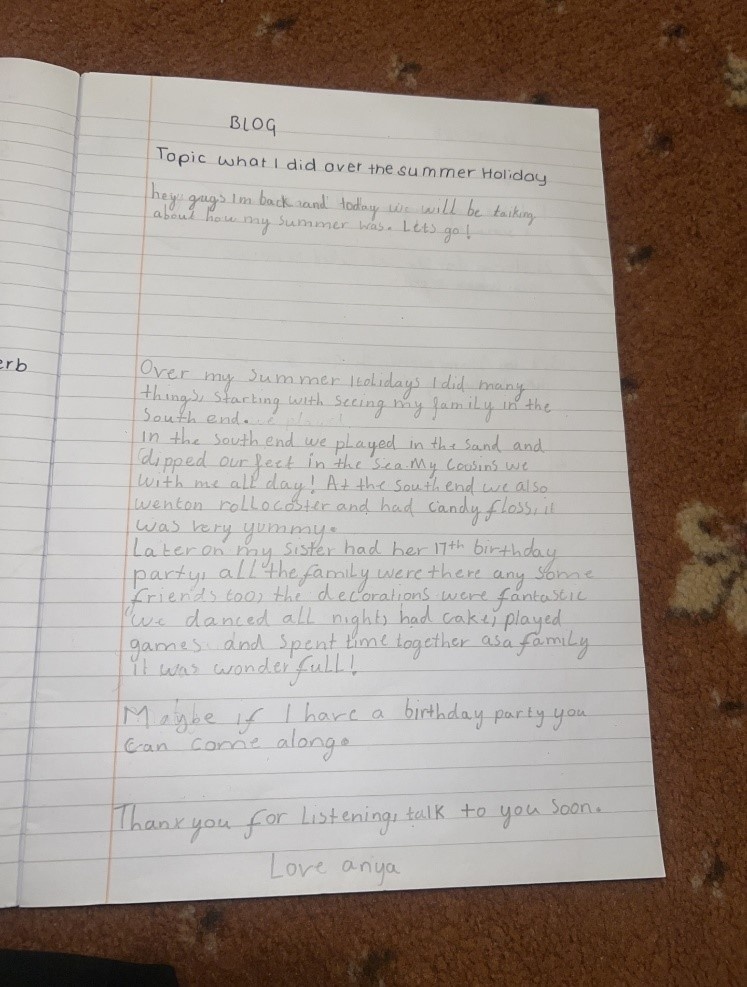 BLOG
Topic what I did over the summer Holiday
hey guys im back and today we will be talking
about how my summer was. Lets go!
erb
Over my summer Holidays I did many
things, starting with seeing my family in the
South end.
in the south end we played in the sand and
dipped our feet in the sea. My Cousins we
with me all day! At the south end we also
wenton rollocoster and had Candy floss, it
was very yummy.
Later on my sister had her 17th birthday
party, all the family were there any some
friends too, the decorations were fantastic
we danced all night, had cake, played
games and spent time together as a family
it was wonderfull!
Maybe if I have a birthday party you
can come along.
Thank you for Listening, talk to you soon.
Love anya